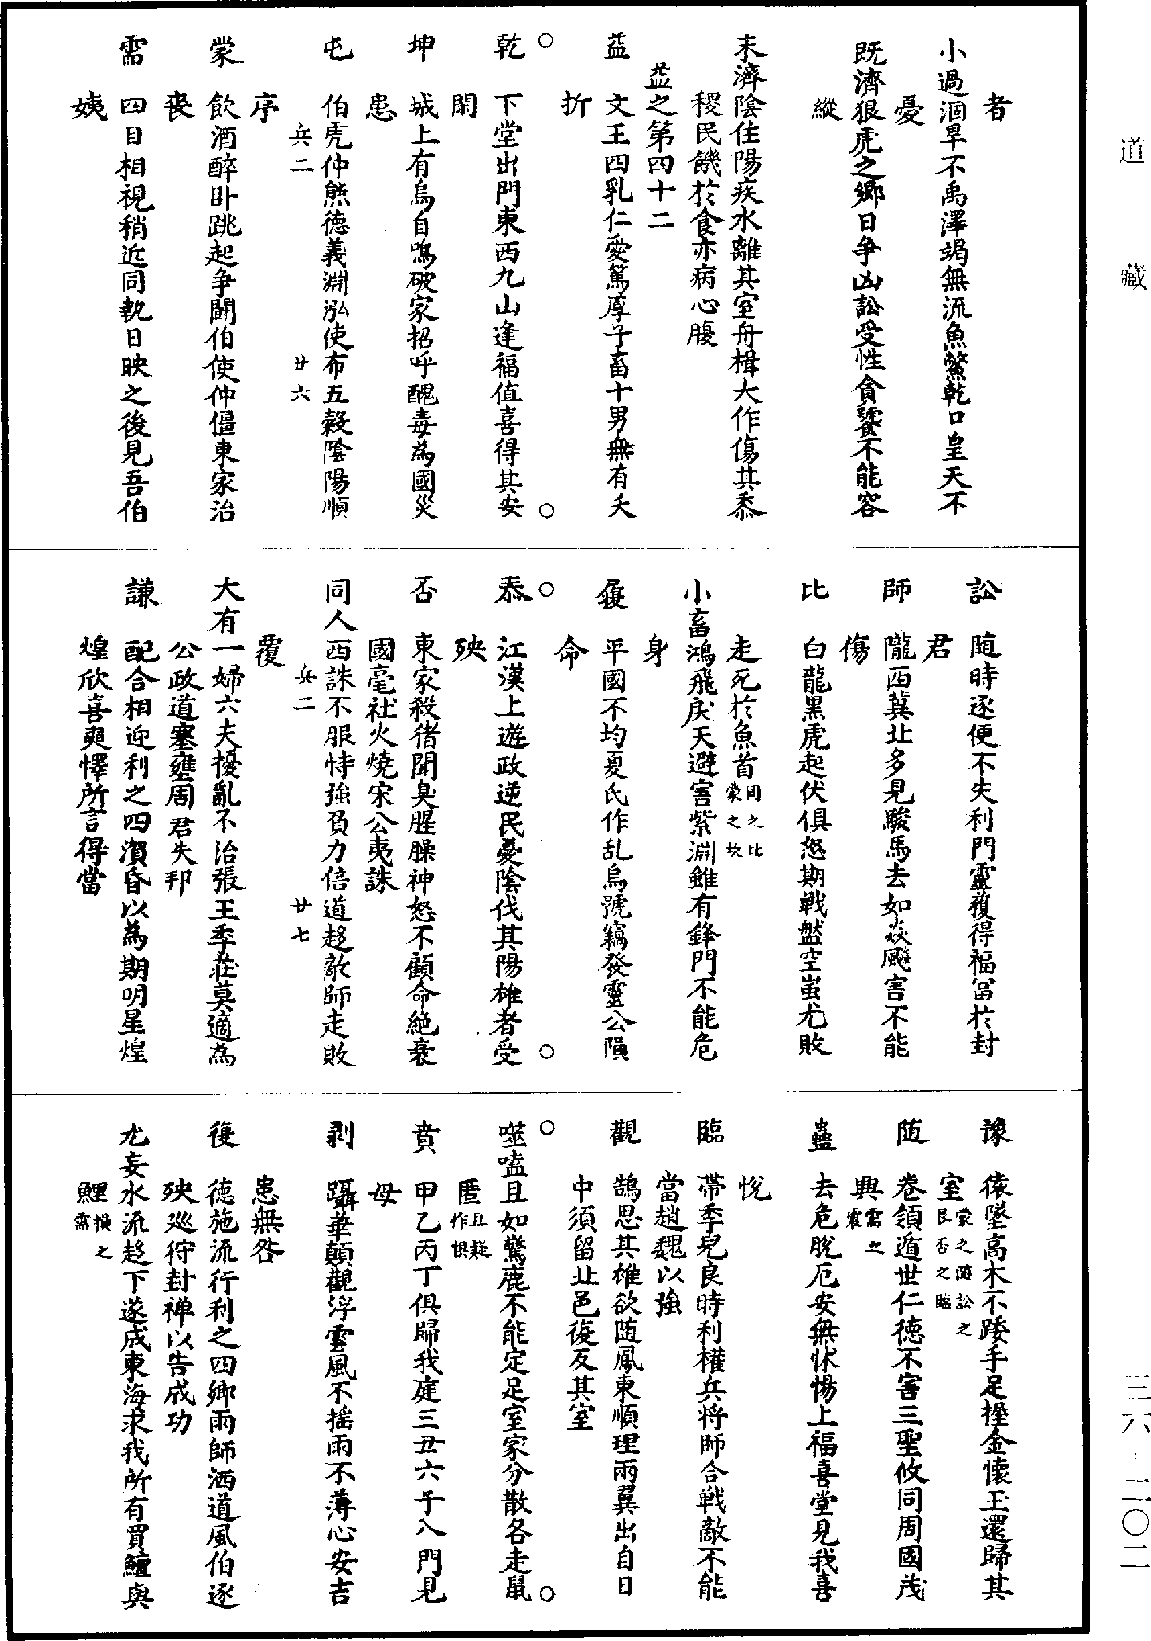 道藏
者
小過涸旱不禹澤竭無流魚鱉乾口皇天不
憂
既濟狼虎之鄉日争凶訟受性貪饕不能容
縱
未濟陰住陽疾水離其室舟楫大作傷其黍
稷民饑於食亦病心腹
益之第四十二
益 文王四乳仁愛篤厚子畜十男無有夭
折
乾 下堂出門東西九山逢福值喜得其安
閑
坤 城上有烏自鳴破家招呼醜毒為國災
患
屯 伯虎仲熊德義淵泓使布五穀陰陽順
序
兵二 廿六
蒙 飲酒醉卧跳起争鬭伯使仲僵東家治
喪
需 四目相視稍近同軌日昳之後見吾伯
姨
訟 隨時逐便不失利門靈獲得福冨於封
君
師 隴西冀北多見駿馬去如焱飈害不能
傷
比 白龍黑虎起伏俱怒期戰盤空蚩尤敗
走死於魚首同之比蒙之坎
小畜鴻飛戾天避害紫淵雖有鋒門不能危
身
履 平國不均夏氏作乱烏號竊發靈公隕
命
泰 江漢上遊政逆民憂陰伐其陽雄者受
殃
否 東家殺猪聞臭腥臊神怒不顧命絶衰
國亳社火燒宋公夷誅
同人西誅不服恃強負力倍道趍敵師走敗
覆
兵二 廿七
大有一婦六夫擾亂不治張王季莊莫適為
公政道塞壅周君失邦
謙 配合相迎利之四瀕昏以為期明星煌
煌欣喜爽懌所言得當
豫 猿墜高木不踒手足握金懷玉還歸其
室蒙之隨訟之艮否之臨
随 卷領遁世仁德不害三聖攸同周國茂
興需之震
蠱 去危脫厄安無怵惕上福喜堂見我喜
悅
臨 帶季兒良時利權兵將師合戰敵不能
當趙魏以強
觀 鵠思其雄欲随鳳東順理兩翼出自日
中須留北邑復反其室
噬嗑且如驚鹿不能定足室家分散各走鼠
匿且疑作惧
賁 甲乙丙丁俱歸我庭三丑六子八門見
母
剥 躡華顛觀浮雲風不揺雨不薄心安吉
患無咎
復 德施流行利之四鄉雨師洒道風伯逐
殃巡狩封禅以告成功
尢妄水流趍下遂成東海求我所有買鱣與
鯉損之需
三六-二〇二